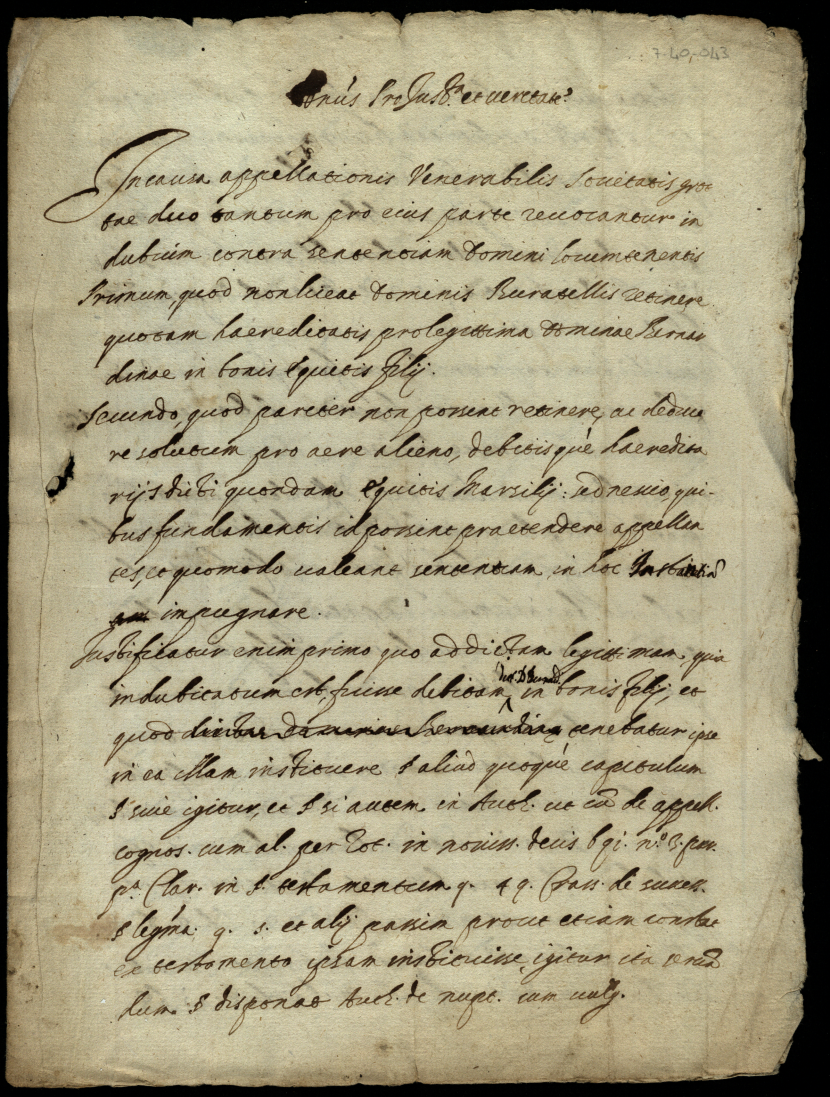 7.40,-043
Pro Just.a et veritate
In causa appellationis Venerabilis Societatis grot
tae duo tantum pro eius parte revocantur in
dubium contra sententiam Domini locumtenentis
Primum, quod non liceat Dominis Buratellis retinere
quotam haereditatis pro legittima Dominae Bernar
dinae in bonis equitis filij.
Secundo, quod pariter non possint retinere, ac deduce
re solutum pro aere alieno, debitisque haeredita
rijs dicti quondam equitis Marsilij: sed nescio, qui-
bus fundamentis id possint praetendere appellan
tes, et quomodo valeant sententiam, in hoc
impugnare.
Justificatur enim primo quo ad dictam legittimam, quia
indubitatum est, fuisse debitam in bonis filij, et
quod tenebatur ipse
in ea illam instituere § aliud quoque capitulum
§ sive igitur, et § si autem in Auth. ut cū de appell.
cognos. cum al. per Rot. in noviss. decis 691. n.o 3. par.
p.a Clar. in § testamentum q. 49. Grass. de success.
§ legma. q. 5. et alij passim prout etiam constat
ex testamento ipsam instituisse, igitur ita
dum § disponat Auth. de nupt. cum vulg.